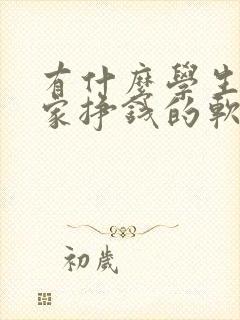 有什麼學生
家掙錢的軟
初歲